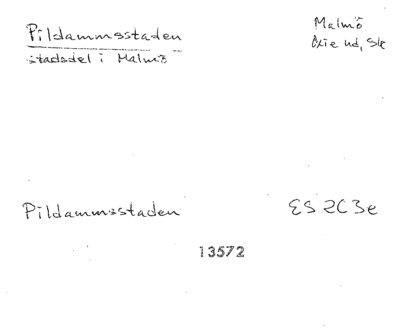 Pildammsstaden
stadsdel i Malmö
Malmö
Oxie hd, Sk
Pildammsstaden
ES 2C3e
13572